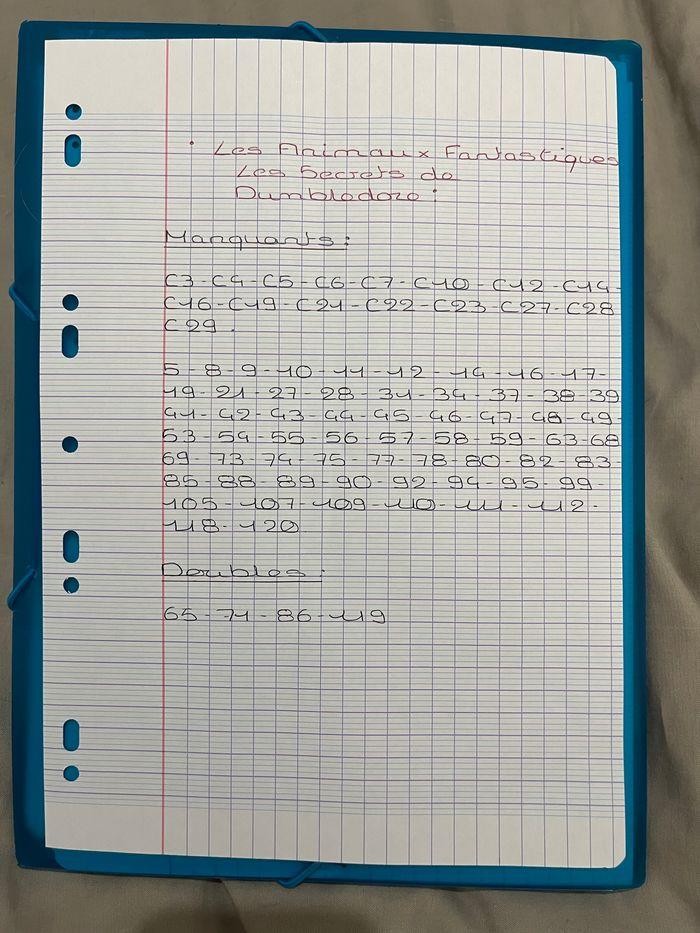 • Les Animaux Fantastiques
Les Secrets de
Dumbledore :
Manquants :
C3 - C4 - C5 - C6 - C7 - C10 - C12 - C14 -
C16 - C19 - C21 - C22 - C23 - C27 - C28
C29 .
5 - 8 - 9 - 10 - 11 - 12 - 14 - 16 - 17 -
19 - 21 - 27 - 28 - 31 - 34 - 37 - 38 - 39
41 - 42 - 43 - 44 - 45 - 46 - 47 - 48 - 49 -
53 - 54 - 55 - 56 - 57 - 58 - 59 - 63 - 68
69 - 73 - 74 - 75 - 77 - 78 - 80 - 82 - 83 -
85 - 88 - 89 - 90 - 92 - 94 - 95 - 99 -
105 - 107 - 109 - 110 - 111 - 112 -
118 - 120
Doubles :
65 - 71 - 86 - 119